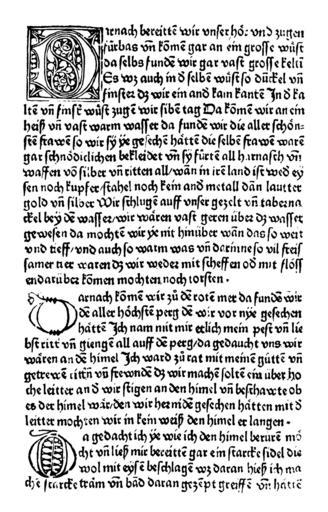 Darnach bereittē wir vnser hör vnd zugen
fürbas vñ kōmē gar an ein grosse wüst
da selbs fundē wir gar vast grosse keltē
Es wz auch in d̄ selbē wüst so dückel vñ
finster dz wir ein and̄ kaum kantē In d̄ kal
tē vñ finstˀ wüst zugē wir sibē tag Da kōmē wir an ein
heiß vñ vast warm wasser da fundē wir die aller schön-
stē frawē so wir sy ye gesechē hättē die selbē frawē warē
gar schnödiclichen bekleidet vñ sy fürtē all harnasch vñ
waffen vō silber vñ rittē all/wān in irē land ist wed̄ ey
sen noch kupfer/stahel noch kein and̄ metall dān lautter
gold vñ silber Wir schlugē auff vnser gezelt vñ tabernā
ckel bey dē wasser/wir wärē vast gerē über dz wasser
gewesen da mochtē wir ye nit hinüber wān das so weit
vnd tieff/vnd auch so warm was vñ darinne so vil freis
samer tier warē dz wir weder mit scheffen od̄ mit flöss
en darüber kōmen mochten noch torsten.
Darnach kōmē wir zů dē rotē mer da fundē wir
dē aller höchstē perg dē wir vor nye gesechē
hättē Ich nam mit mir etlich mein pest vñ lie
bst ritt vñ giengē all auff dē perg/da gedaucht vns wir
wärē an dē himel Ich ward zů rat mit meinē gůttē vñ
getrewē rittn vñ frewndē dz wir machē soltē ein über ho
che leitter and̄ wir stigen an den himel vñ beschawtē ob
es der himel wär/den wir hernidē gesechen hattē mit d̄
leitter mochtē wir in kein weiß den himel er langen·
Da gedacht ich ye wie ich den himel berürē mö
cht vñ ließ mir bereittē gar ein starcke sidel die
wol mit eysē beschlagē wz daran hieß ich ma
chē starcke träm vñ bād daran gezēpt greiffen vñ hättē